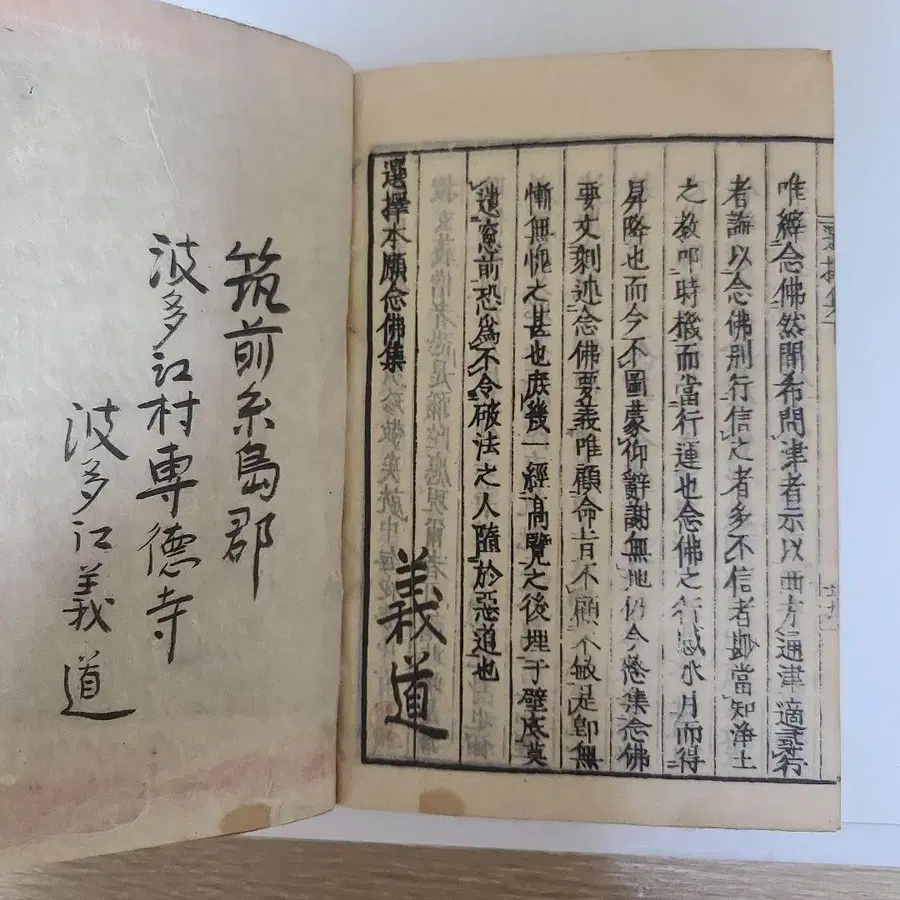 唯縡念佛然間希問津者示以西方通津適尋行
者誨以念佛別行信之者多不信者尠當知淨土
之教叩時機而當行運也念佛之行感水月而得
昇降也而今不圖蒙仰辭謝無地仍今憖集念佛
要文剩述念佛要義唯顧命旨不顧不敏是卽無
慚無愧之甚也庶幾一經高覽之後埋于壁底莫
遺窻前恐爲不令破法之人墮於惡道也
選擇本願念佛集
義道
筑前糸島郡
波多江村專德寺
波多江義道